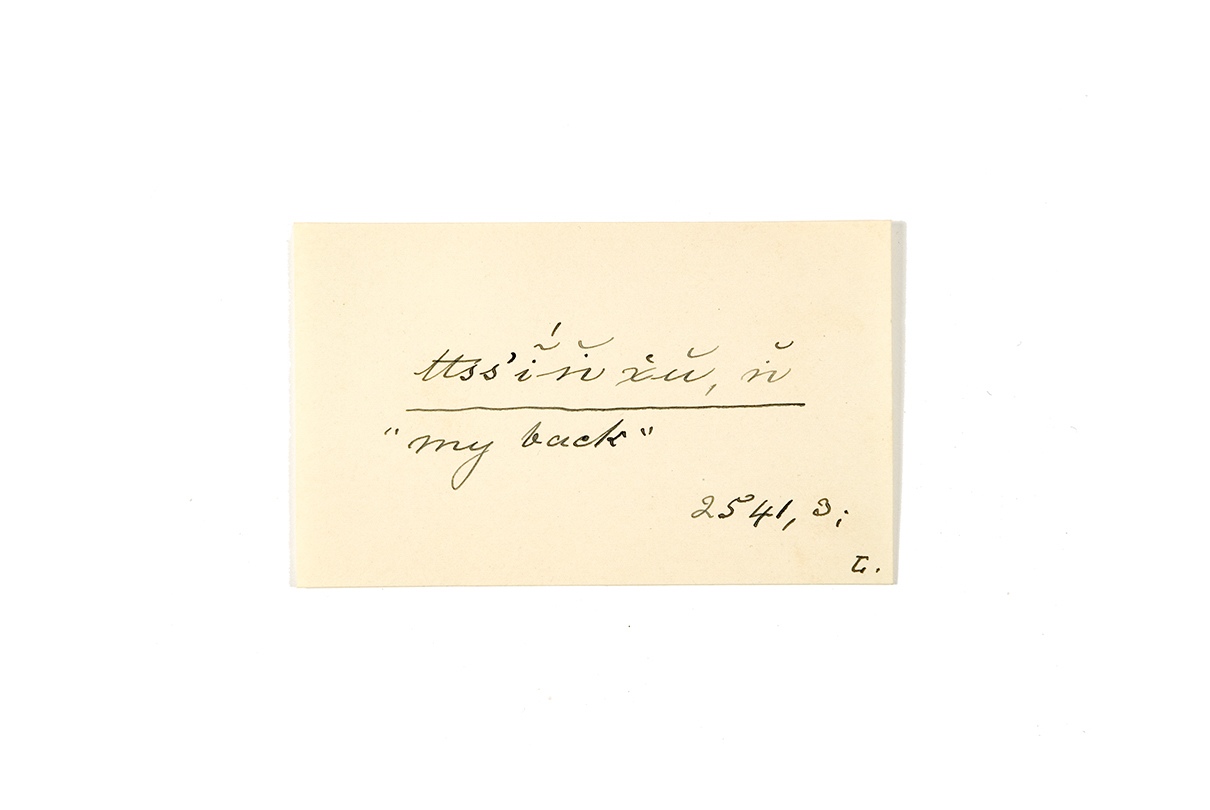 ttss'ĩ́ṅ̆ ẋŭ, ṅ̆
"my back"
2541, 3;
T.